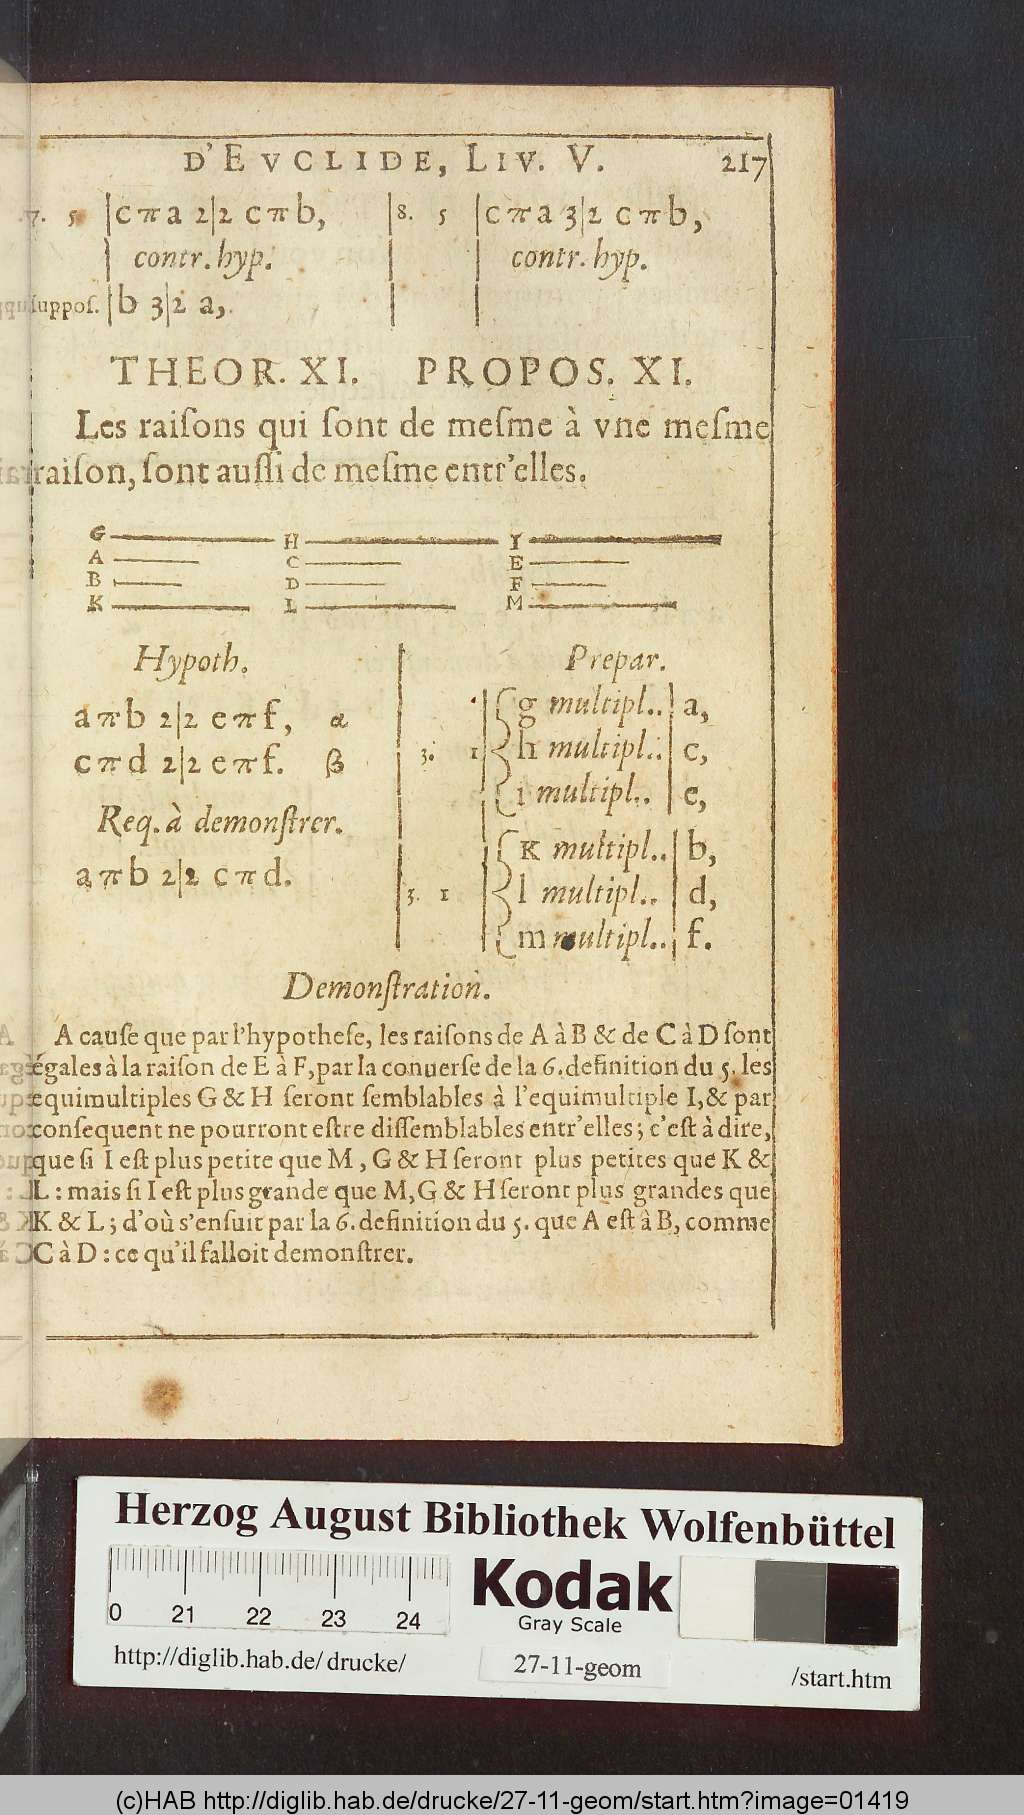 D'EVCLIDE, LIV. V. 217
7. 5 |cπa 2|2 cπb, |8. 5 |cπa 3|2 cπb,
contr. hyp. contr. hyp.
suppoſ. |b 3|2 a,
THEOR. XI. PROPOS. XI.
Les raiſons qui ſont de meſme à vne meſme
raiſon, ſont auſſi de meſme entr'elles.
G H I
A C E
B D F
K L M
Hypoth.
aπb 2|2 eπf, α
cπd 2|2 eπf. β
Req. à demonſtrer.
aπb 2|2 cπd.
Prepar.
g multipl.. | a,
3. 1 h multipl.. | c,
i multipl.. | e,
K multipl.. | b,
3. 1 l multipl.. | d,
m multipl.. | f.
Demonſtration.
A cauſe que par l'hypotheſe, les raiſons de A à B & de C à D ſont
égales à la raiſon de E à F, par la conuerſe de la 6. definition du 5. les
equimultiples G & H ſeront ſemblables à l'equimultiple I, & par
conſequent ne pourront eſtre diſſemblables entr'elles; c'eſt à dire,
que ſi I eſt plus petite que M, G & H ſeront plus petites que K &
L: mais ſi I eſt plus grande que M, G & H ſeront plus grandes que
K & L; d'où s'enſuit par la 6. definition du 5. que A eſt à B, comme
C à D: ce qu'il falloit demonſtrer.
Herzog August Bibliothek Wolfenbüttel
0 21 22 23 24
Kodak
Gray Scale
http://diglib.hab.de/ drucke/ 27-11-geom /start.htm
(c)HAB http://diglib.hab.de/drucke/27-11-geom/start.htm?image=01419